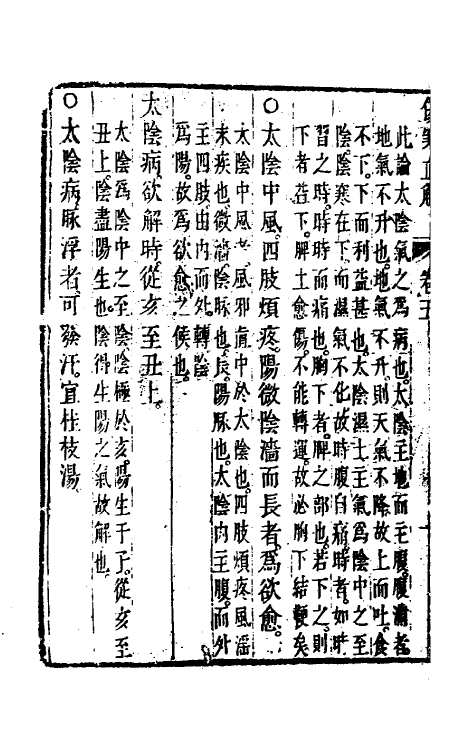 傷寒直解　卷五
此論太陰氣之爲病也太陰主地而主腹腹滿者
地氣不升也地氣不升則天氣不降故上而吐食
不下下而利益甚也太陰濕土主氣爲陰中之至
陰陰寒在下而濕氣不化故時腹自痛時者如時
習之時時時而痛也胸下者脾之部也若下之則
下者益下脾土愈傷不能轉運故必胸下結鞕矣
○太陰中風四肢煩疼陽微陰濇而長者爲欲愈
太陰中風者風邪直中於太陰也四肢煩疼風淫
末疾也微濇陰脉也長陽脉也太陰內主腹而外
主四肢由內而外轉陰
爲陽故爲欲愈之候也
太陰病欲解時從亥至丑上
太陰爲陰中之至陰陰極於亥陽生于子從亥至
丑上陰盡陽生也陰得生陽之氣故解也
○太陰病脉浮者可發汗宜桂枝湯